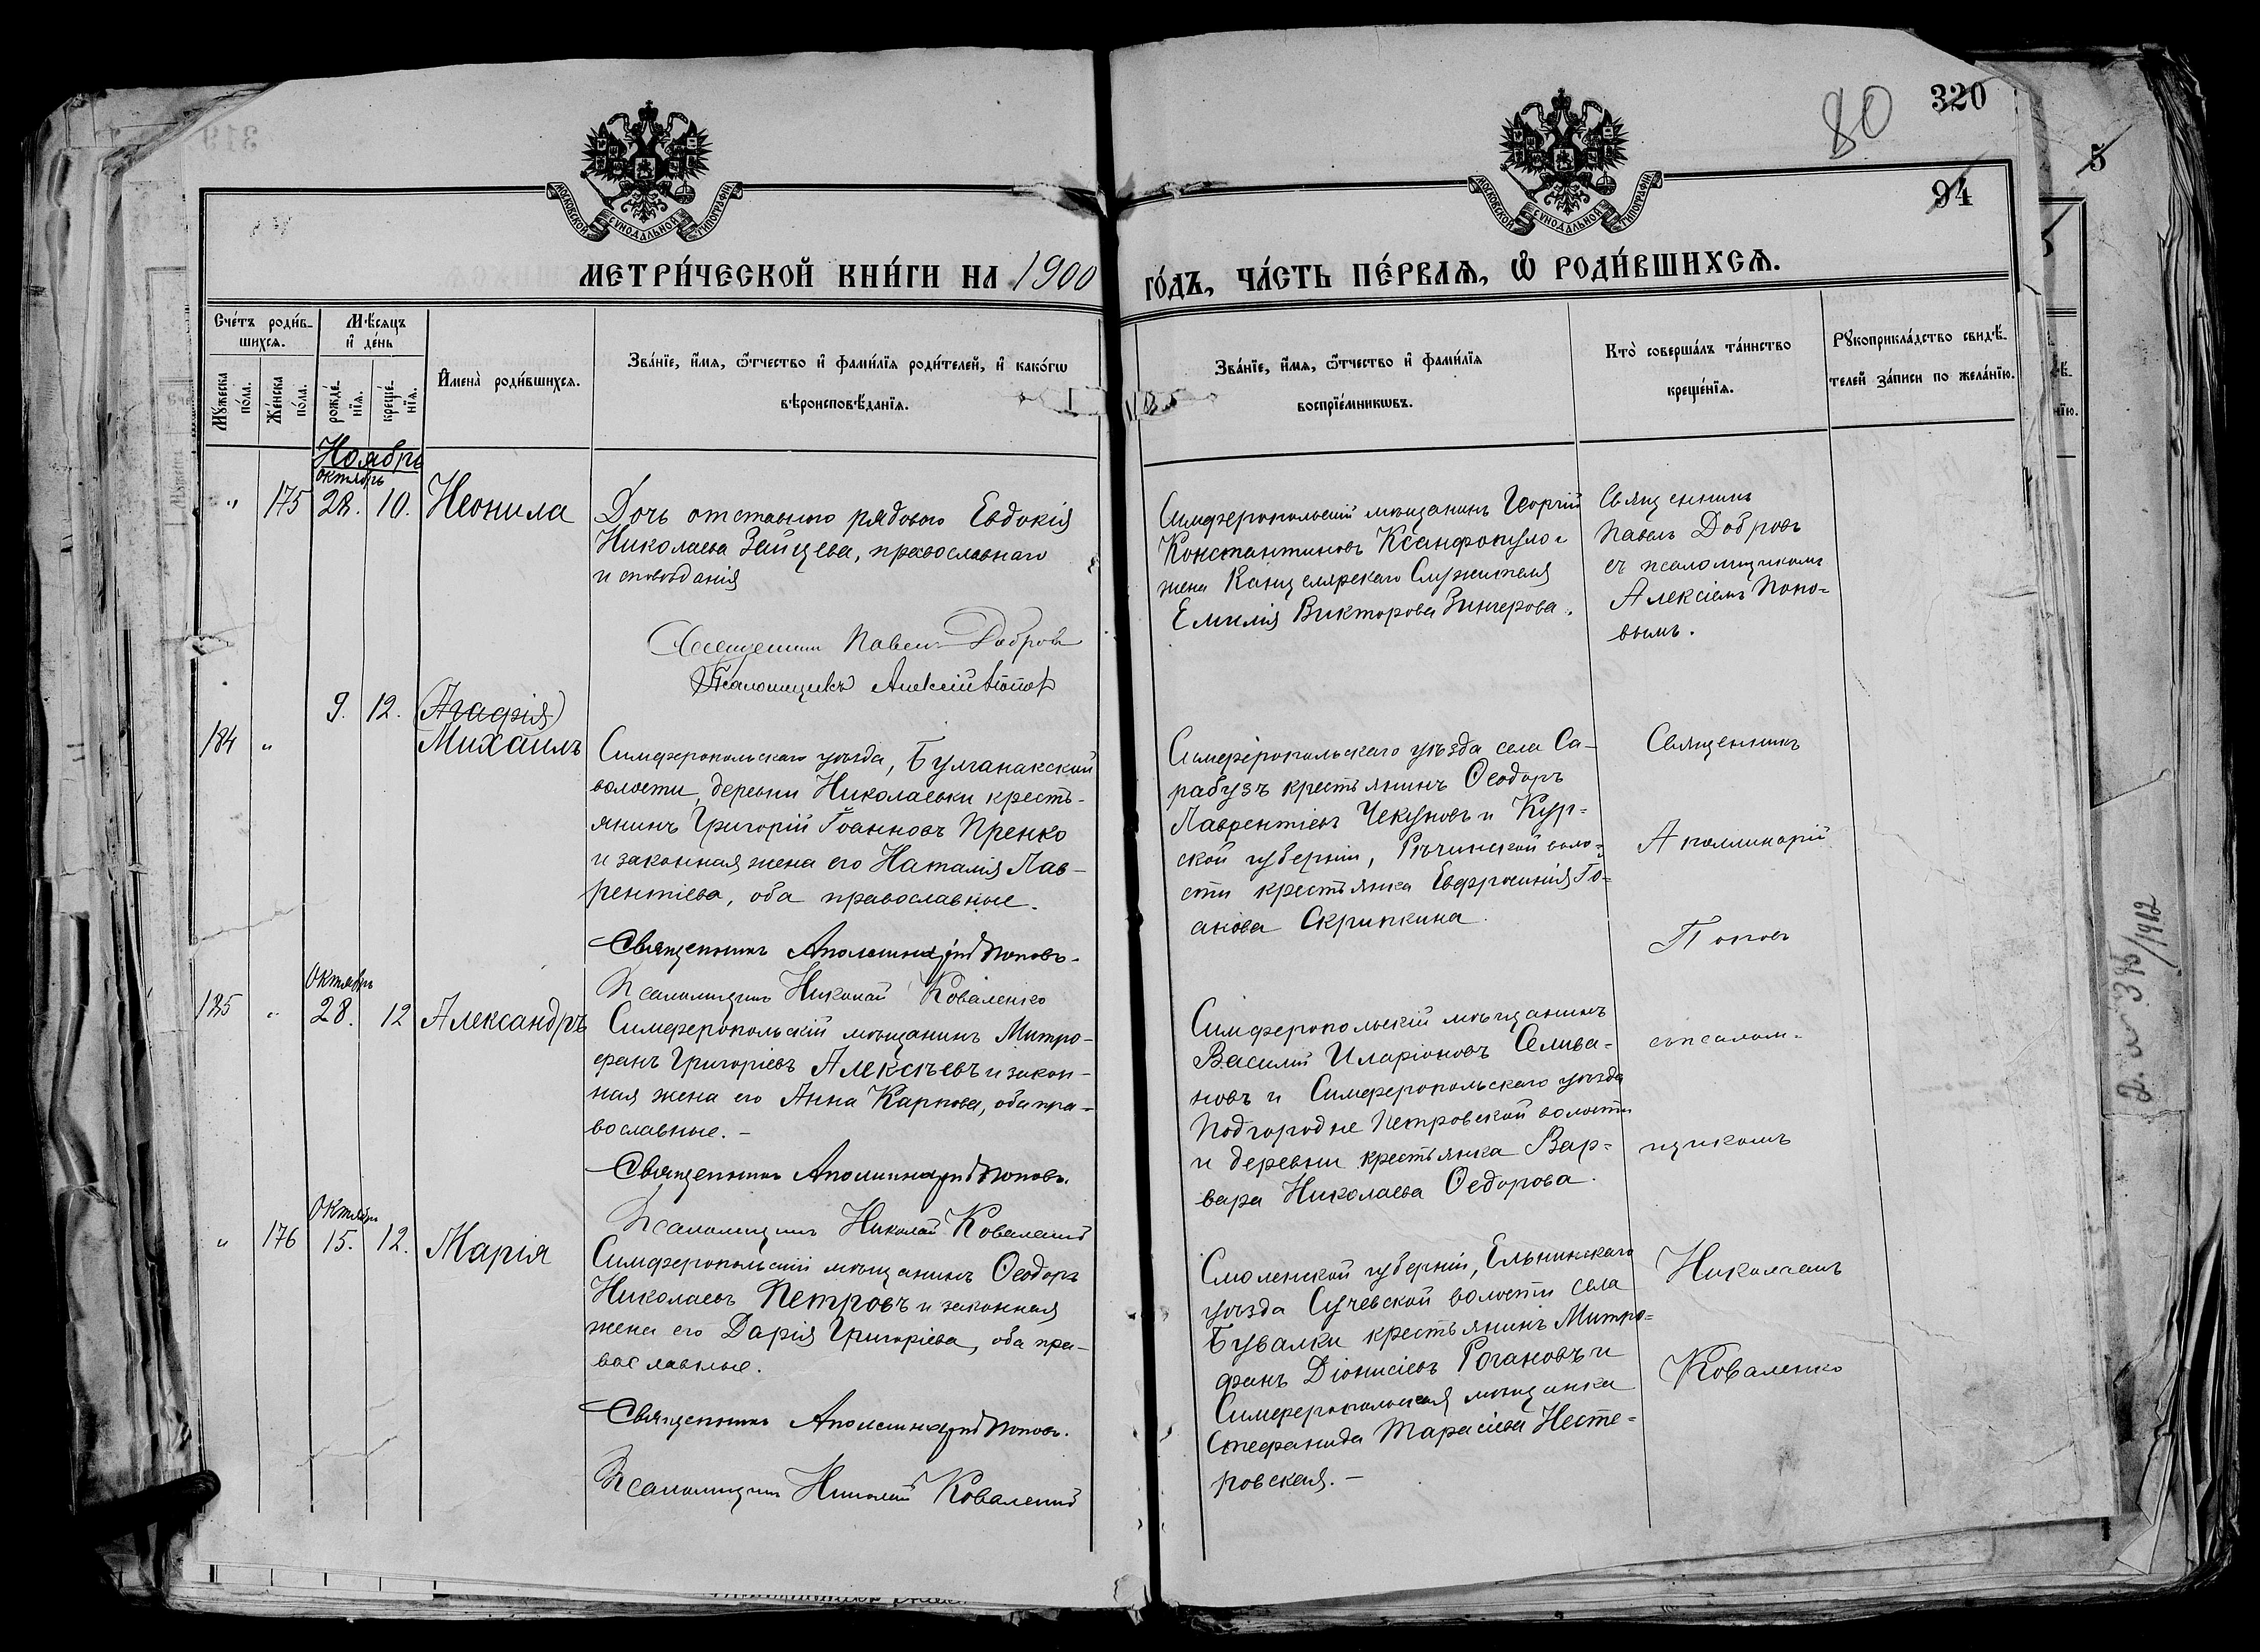 80
320
94
5
МОСКОВСКОЙ СѴНОДАЛЬНОЙ ТИПОГРАФІИ
МОСКОВСКОЙ СѴНОДАЛЬНОЙ ТИПОГРАФІИ
МЕТРИ́ЧЕСКОЙ КНИ́ГИ НА 1900 ГО́ДЪ, ЧА́СТЬ ПЕ́РВАѦ, Ѽ РОДИ́ВШИХСѦ.
Сче́тъ роди́в-
шихсѧ.
Мꙋ́жеска по́ла.
Же́нска по́ла.
Мѣ́сѧцъ
и҆ де́нь
рожде́-
нїѧ.
креще́-
нїѧ.
И҆мена̀ роди́вшихсѧ.
Зва́нїе, и҆́мѧ, ѻ҆́тчество и҆ фами́лїѧ роди́телей, и҆ како́гѡ
вѣроисповѣ́данїѧ.
Зва́нїе, и҆́мѧ, ѻ҆́тчество и҆ фами́лїѧ
воспрїе́мникѡвъ.
Кто̀ соверша́лъ та́инство
креще́нїѧ.
Рꙋкоприкла́дство свидѣ́-
телей за́писи по жела́нїю.
Ноябрь
октябрь
" 175 28. 10. Неонила
Дочь отставного рядового Евдокія
Николаева Зайцева, православнаго
исповѣданія
Священникъ Павелъ Добровъ
Псаломщикъ Алексій Попов
Симферопольскій мѣщанинъ Георгій
Константиновъ Ксанфопуло и
жена Канцелярскаго Служителя
Емилія Викторова Зингерова.
Священникъ
Павелъ Добровъ
съ псаломщикомъ
Алексіемъ Попо-
вымъ.
9. 12. (Агафія)
184 " Михаилъ
Симферопольскаго уѣзда, Булганакской
волости, деревни Николаевки кресть-
янинъ Григорій Іоанновъ Пренко
и законная жена его Наталія Лав-
рентіева, оба православные.
Священникъ Аполлинарій Поповъ.
Псаломщикъ Николай Коваленко
Симферопольскаго уѣзда села Са-
рабузъ крестьянинъ Ѳеодоръ
Лаврентіевъ Чекуновъ и Кур-
ской губерніи, Рѣчинской воло-
сти крестьянка Евфросинія Іо-
анова Скрипкина.
Священникъ
Аполлинарій
Поповъ
октябрь
185 " 28. 12 Александръ
Симферопольскій мѣщанинъ Митро-
фанъ Григоріевъ Алексѣевъ и закон-
ная жена его Анна Карпова, оба пра-
вославные. -
Священникъ Аполлинарій Поповъ.
Псаломщикъ Николай Коваленко
Симферопольскій мѣщанинъ
Василій Иларіоновъ Селива-
новъ и Симферопольскаго уѣзда
Подгородне Петровской волости
и деревни крестьянка Вар-
вара Николаева Ѳедорова.
съ псалом-
щикомъ
октябрь
" 176 15. 12. Марія
Симферопольскій мѣщанинъ Ѳеодоръ
Николаевъ Петровъ и законная
жена его Дарія Григоріева, оба пра-
вославные.
Священникъ Аполлинарій Поповъ.
Псаломщикъ Николай Коваленко
Смоленской губерніи, Ельнинскаго
уѣзда Сучевской волости села
Бувалки крестьянинъ Митро-
фанъ Діонисіевъ Рогановъ и
Симферопольская мѣщанка
Стефанида Тарасіева Несте-
ровская. -
Николаемъ
Коваленко